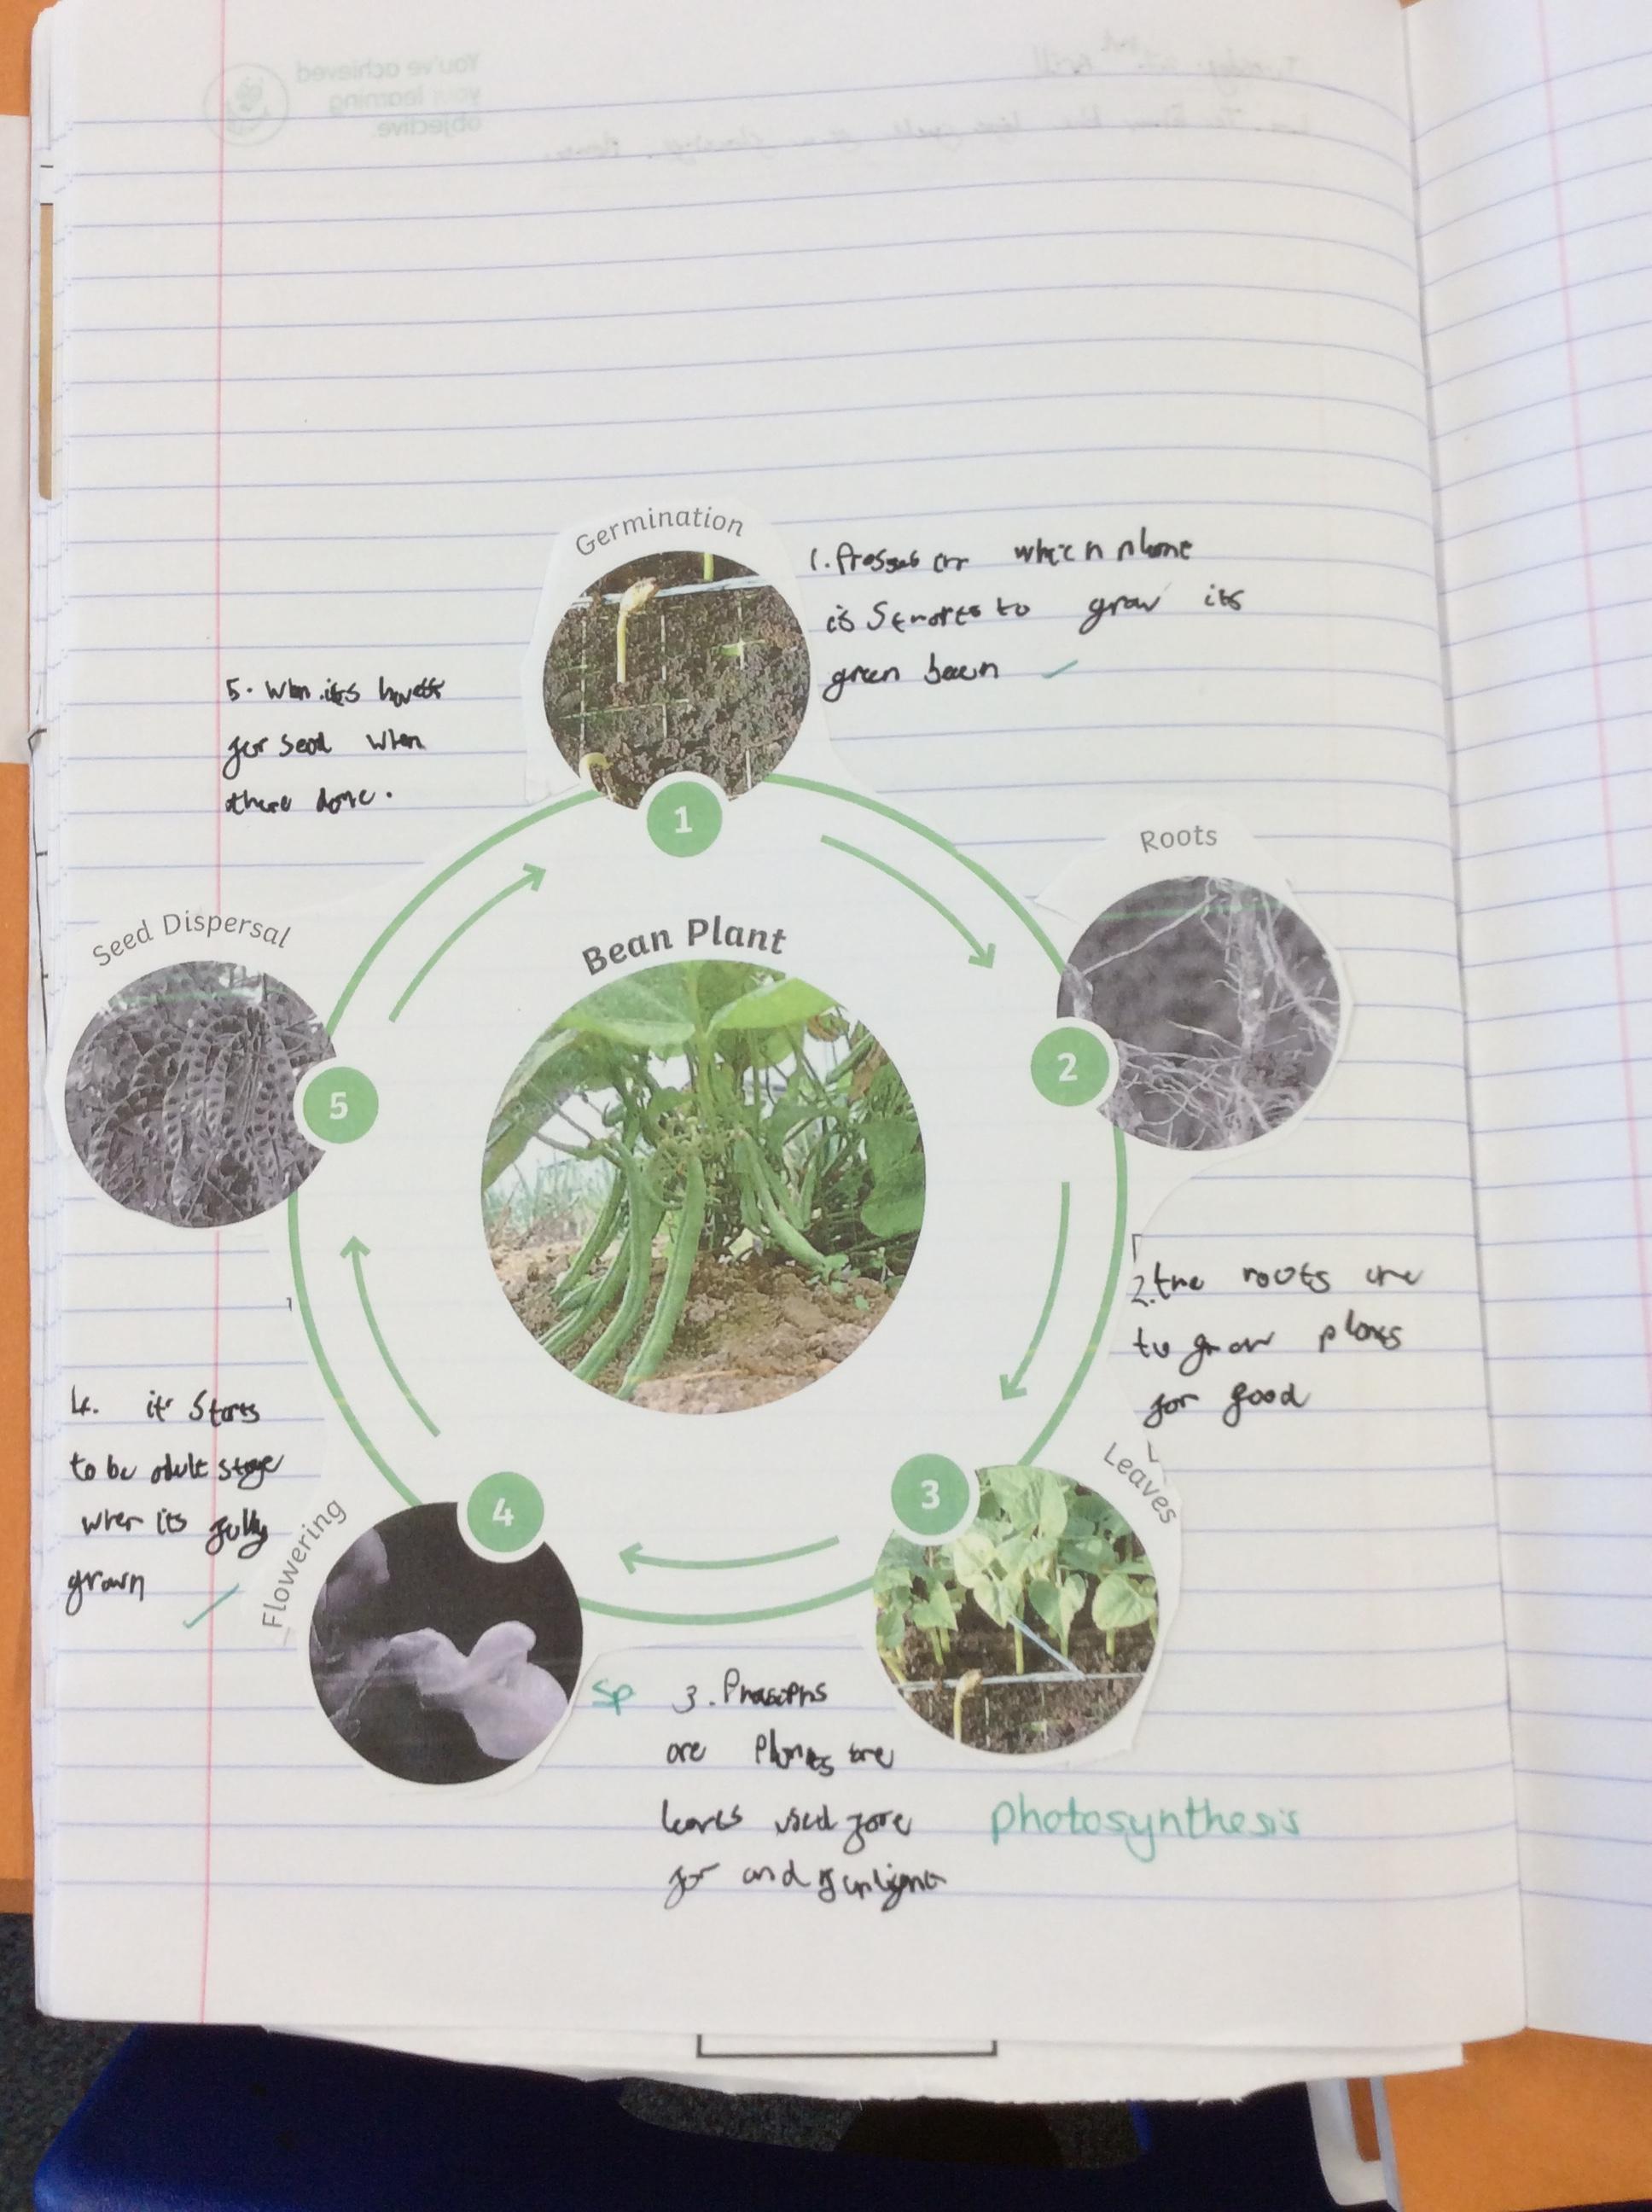 You've achieved
your learning
objective.
Germination
1. Prosses in which plant
is Starts to grow its
green bean
5. When its
for seed when
there done.
Roots
Seed Dispersal
Bean Plant
1
2
3
4
5
2. the roots are
to grow plants
for good
Leaves
4. it Starts
to be adult stage
when its fully
grown
Flowering
Sp 3.
are Plants are
leaves used fore
for and sunlight
photosynthesis